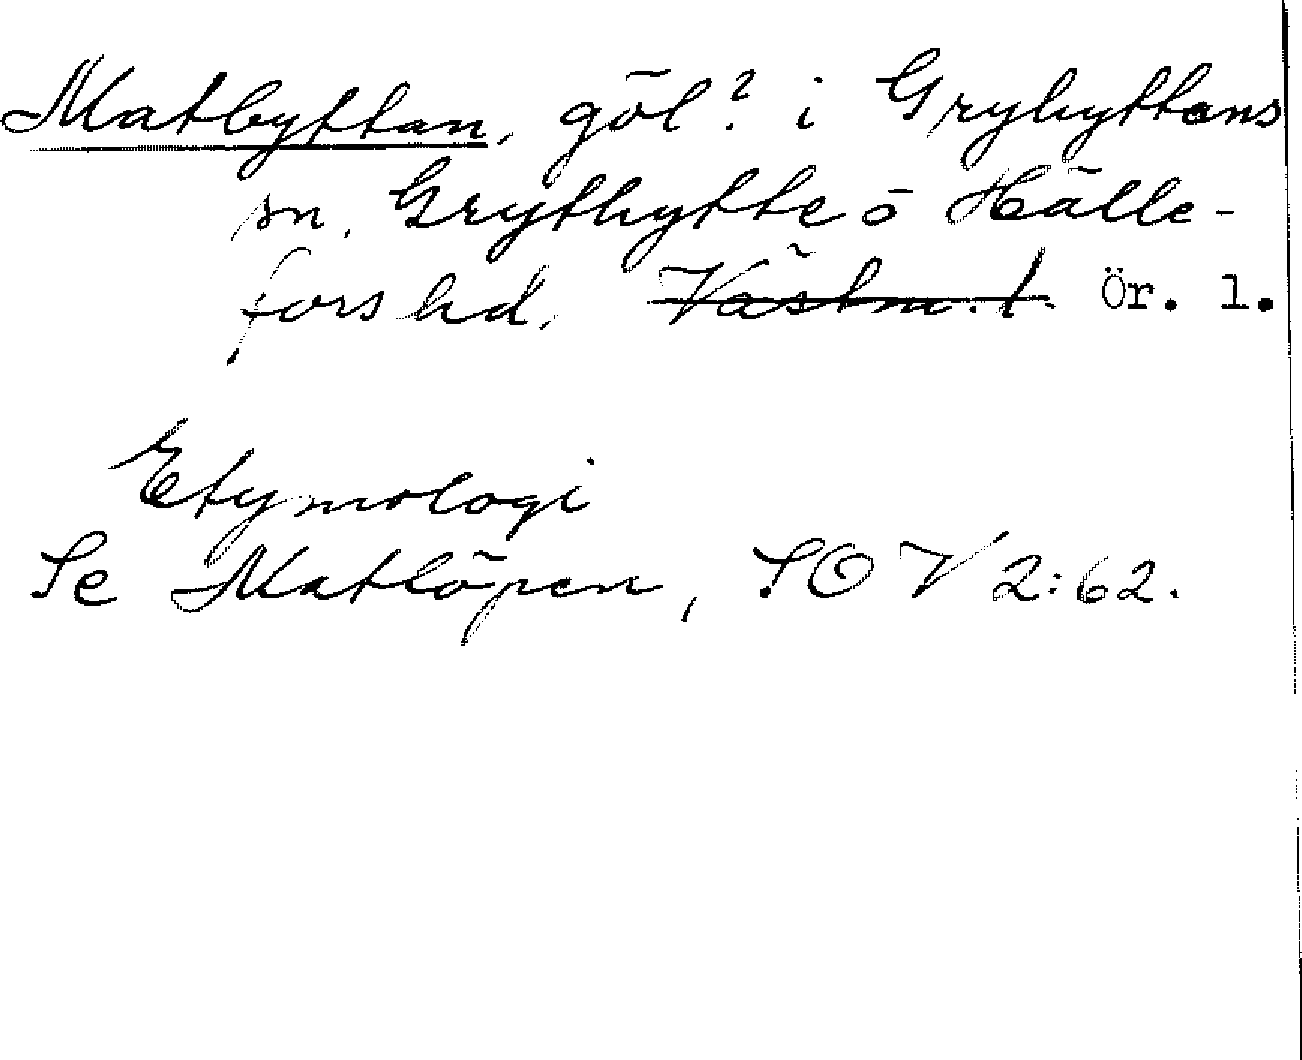 Matbyttan, göl? i Gryhyttans
sn. Grythytte o Hälle-
fors hd. Västm. l. Ör. l.
Etymologi
Se Matlöpen, SOV 2:62.